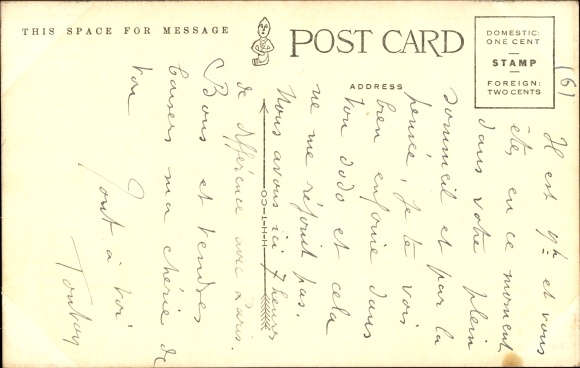 THIS SPACE FOR MESSAGE
POST CARD
ADDRESS
DOMESTIC:
ONE CENT
STAMP
FOREIGN:
TWO CENTS
H-H-T-CO
(6)
Il est 9h et vous
êtes en ce moment
dans votre plein
sommeil et par la
pensée, je te vois
bien enfouie dans
ton dodo et cela
ne me réjouit pas.
Nous avons ici 7 heures
de différence avec Paris.
Bons et tendres
baisers ma chérie de
ton
Tout à toi